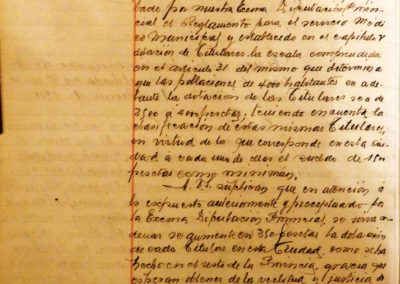 bado por nuestra Excma Diputación Provin-
cial el Reglamento para el servicio Médi-
co Municipal y establecido en el capítulo
dotación de Titulares la escala comprendida
en el artículo 31 del mismo que determina
que las poblaciones de 4000 habitantes en ade-
lante la dotación de las Titulares sea de
2500 a 4000 pesetas, teniendo en cuenta la
clasificación de estas mismas Titulares,
en virtud de la que corresponde en esta ciu-
dad a cada una de ellas el sueldo de
pesetas como mínimum,
suplican que en atención á
lo expuesto anteriormente y preceptuado por
la Excma Diputación Provincial, se sirva or-
denar se aumente en 350 pesetas la dotación
de cada Titular en esta Ciudad, como se ha
hecho en el resto de la Provincia, gracia que
esperan obtener de la rectitud y justicia de